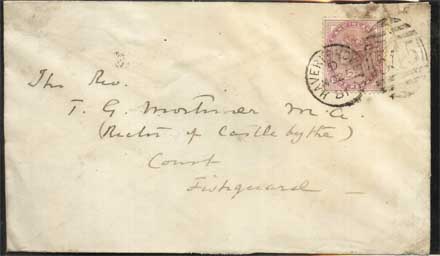 The Rev.
T. G. Mortimer M.A.
(Rector of Castlebythe)
Court
Fishguard
HAVERFORD
81